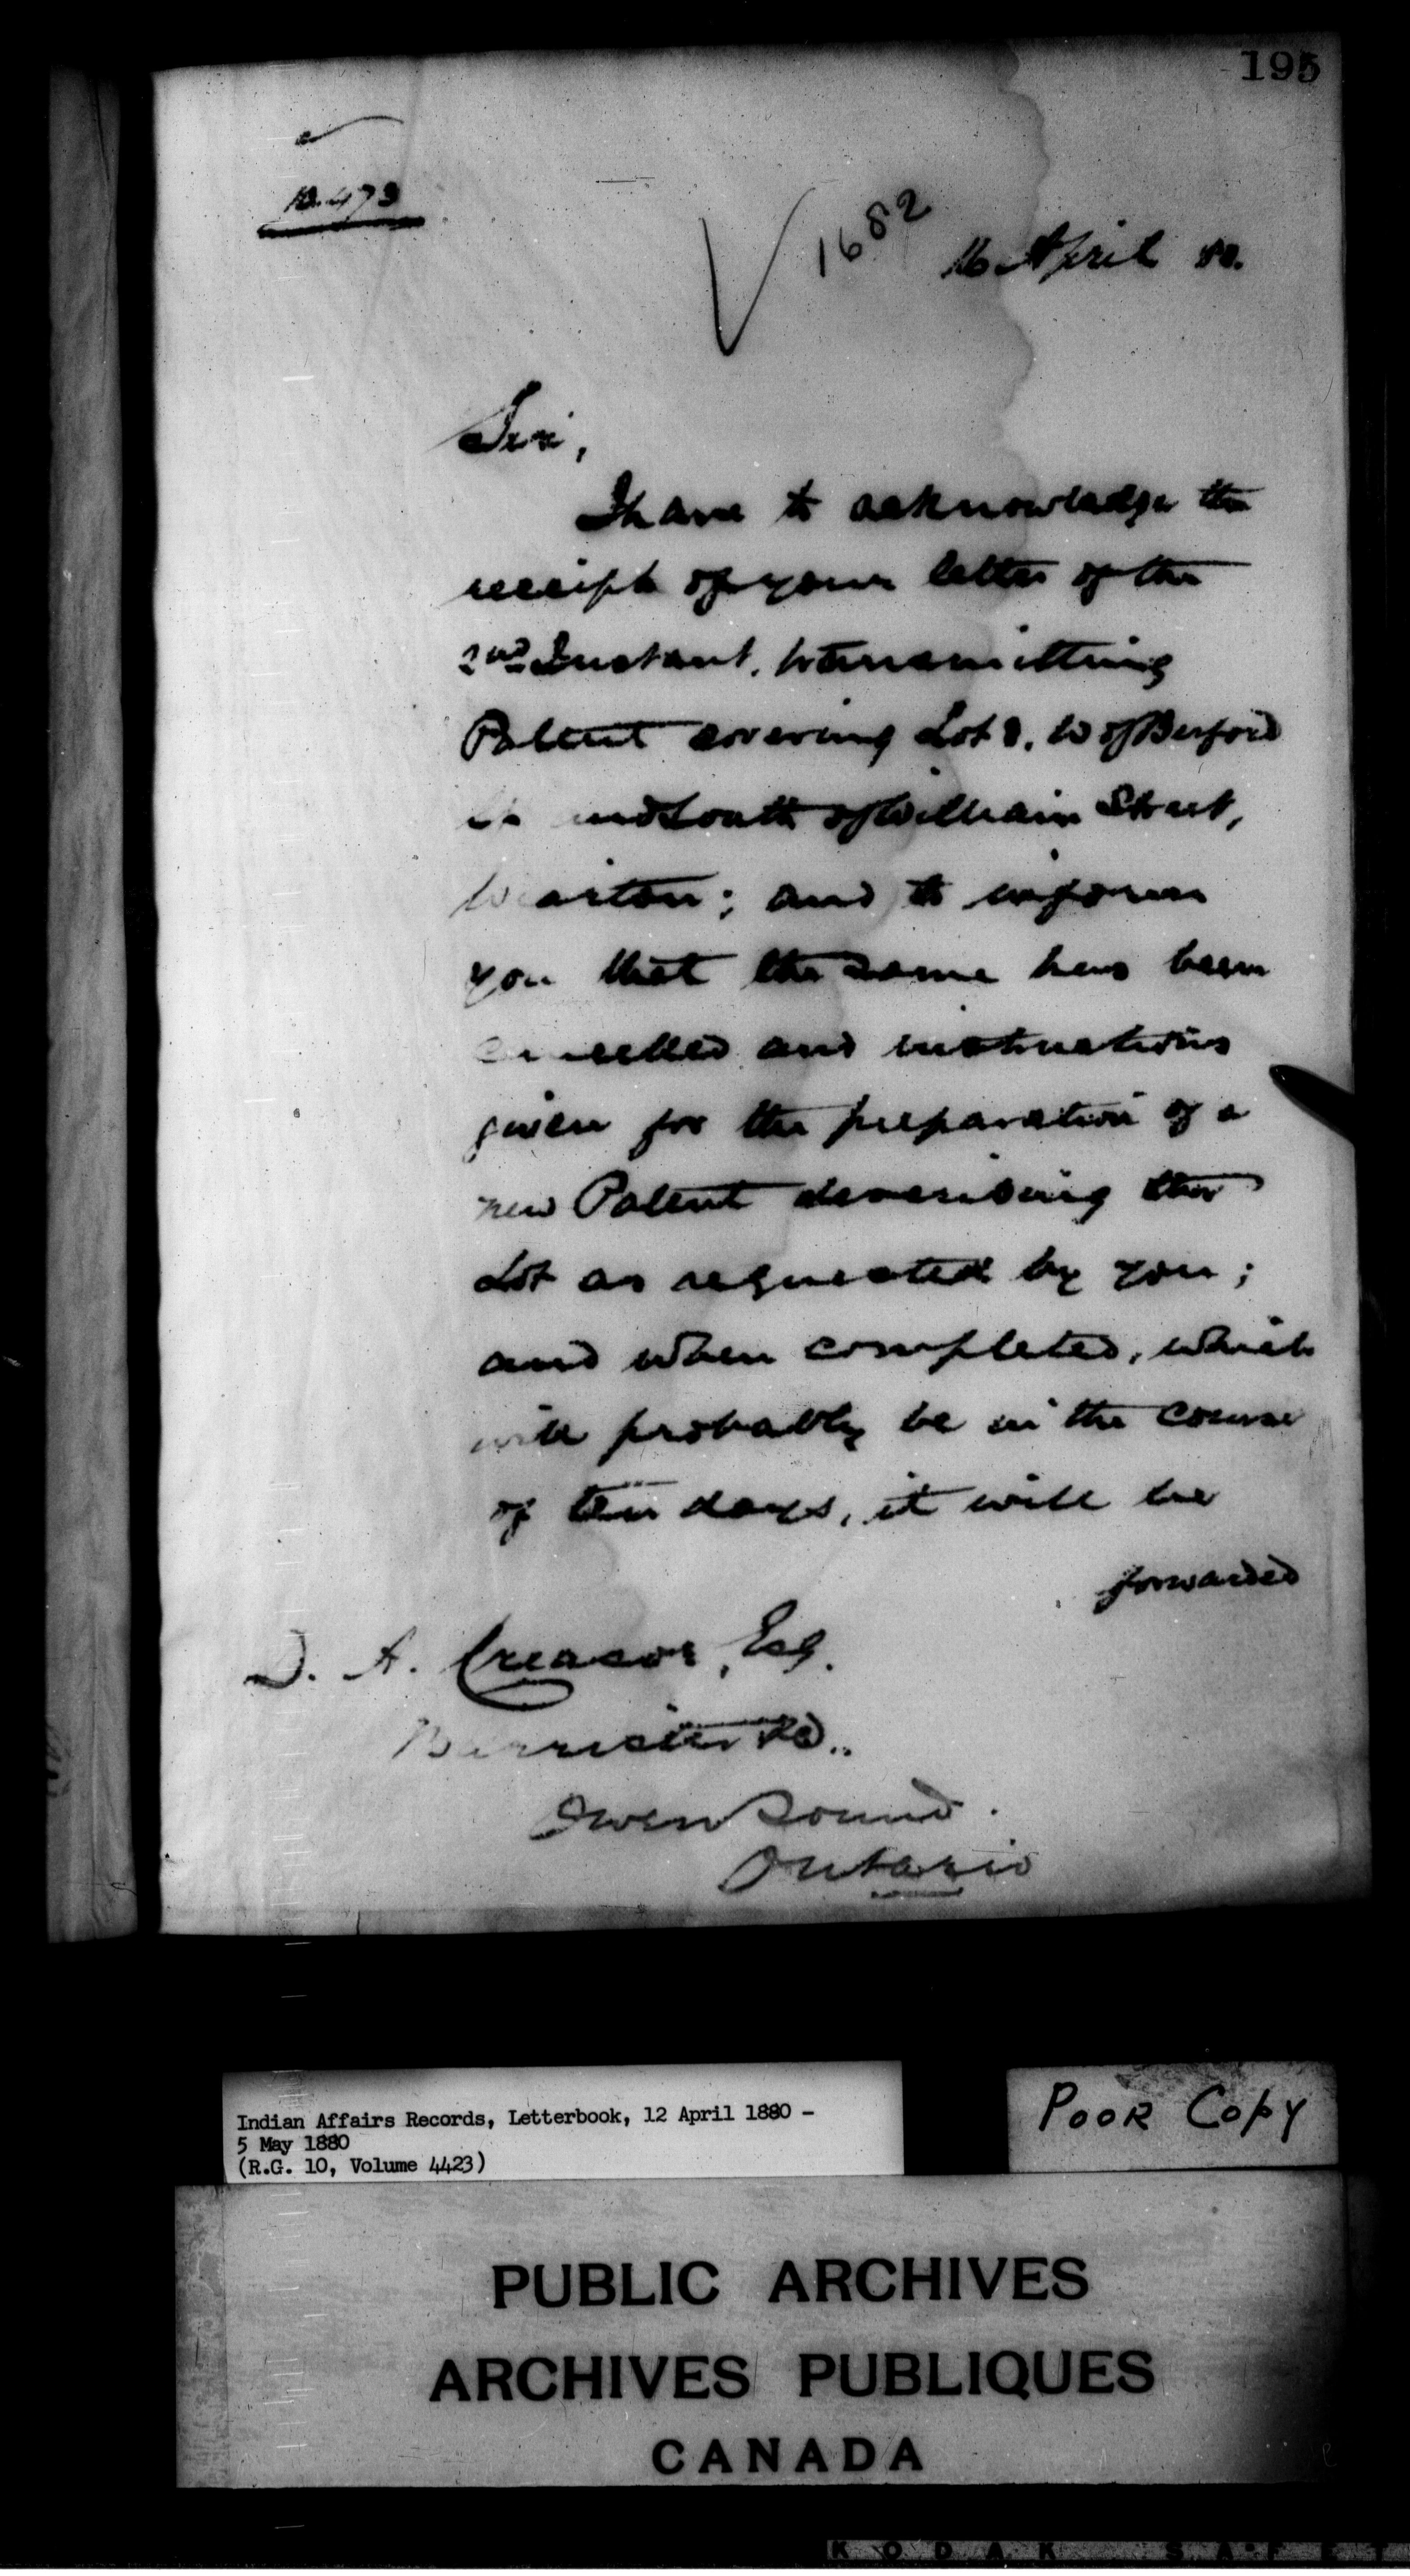 195
10.473
1682
16 April 80.
Sir,
I have to acknowledge the
receipt of your letter of the
2nd Instant, transmitting
Patent covering Lot 8, W of Berford
and South of William Street,
Wiarton; and to inform
you that the same has been
cancelled and instructions
given for the preparation of a
new Patent describing the
Lot as requested by you;
and when completed, which
will probably be in the course
of ten days, it will be
forwarded
D. A. Creasor, Esq.
Barrister &c.,
Owen Sound.
Ontario
Indian Affairs Records, Letterbook, 12 April 1880 -
5 May 1880
(R.G. 10, Volume 4423)
Poor Copy
PUBLIC ARCHIVES
ARCHIVES PUBLIQUES
CANADA
KODAK SAFET